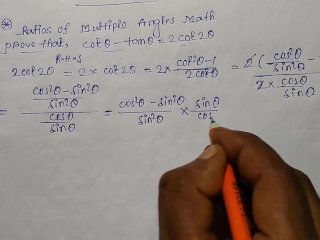 * Ratios of Multiple Angles Math
prove that, cotθ - tanθ = 2cot2θ
R·H·S
2cot2θ = 2 × cot2θ = 2 × (cot²θ-1)/(2cotθ) = 2(cos²θ/sin²θ - 1)/(2 × cosθ/sinθ)
= ((cos²θ - sin²θ)/sin²θ)/(cosθ/sinθ) = (cos²θ - sin²θ)/sin²θ × sinθ/cos